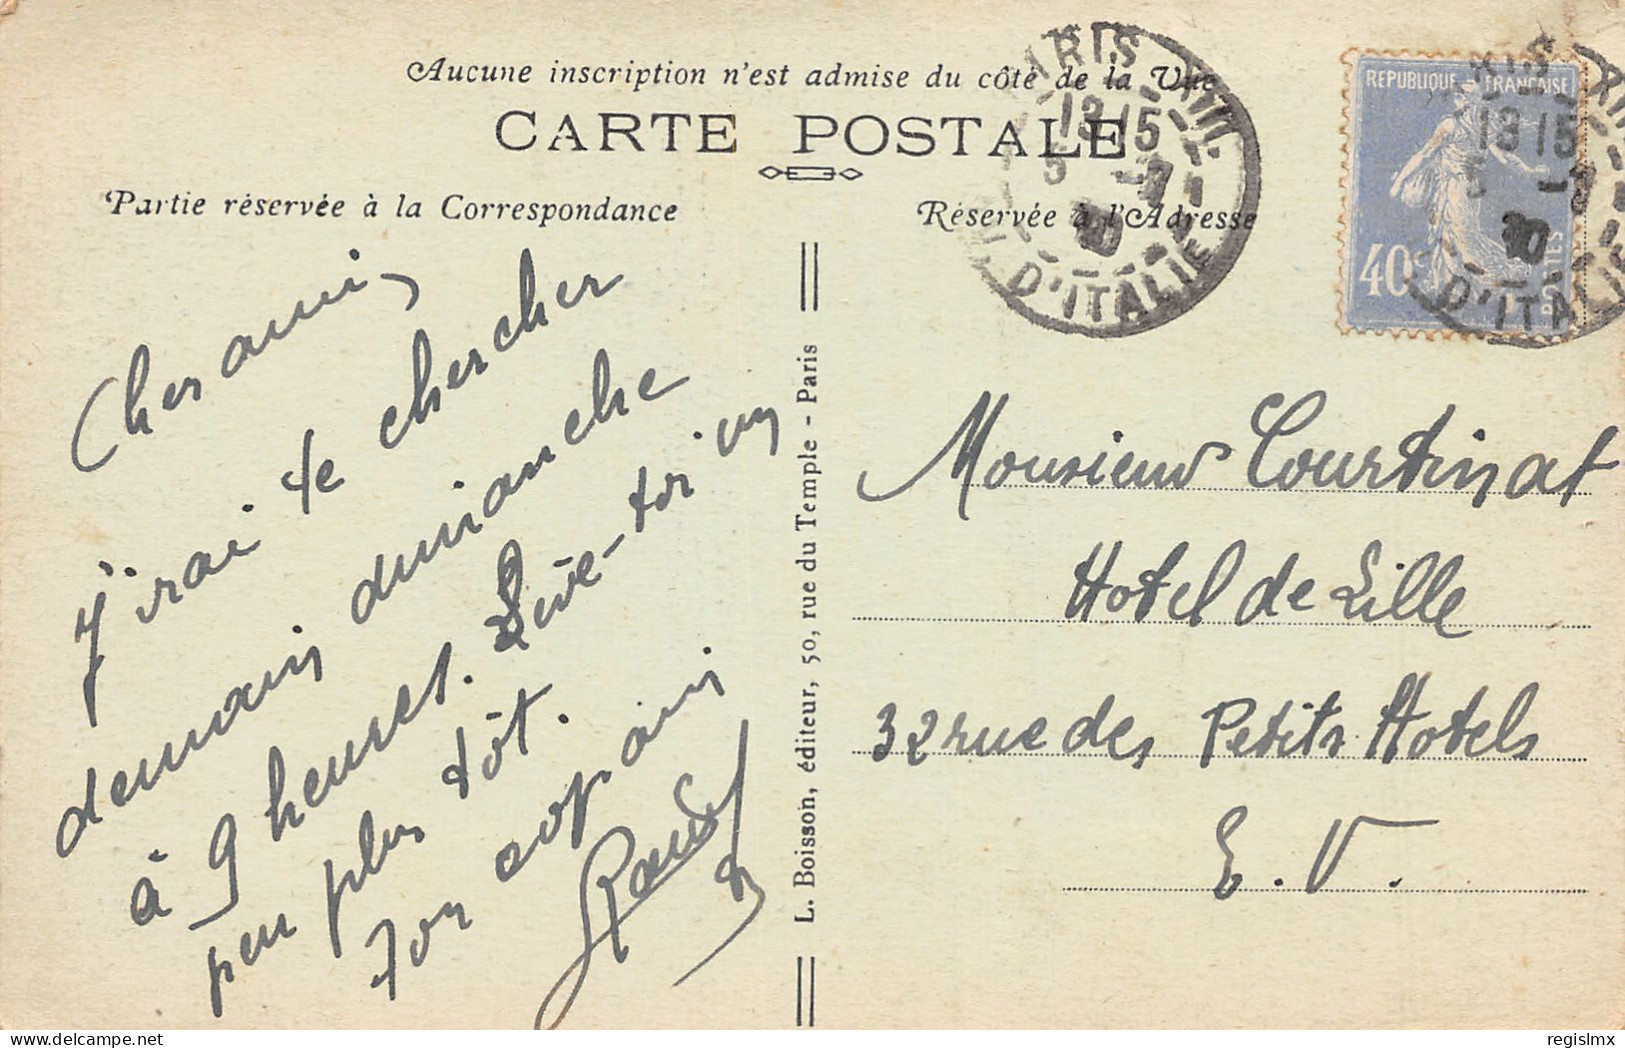 Aucune inscription n'est admise du côté de la Vue
CARTE POSTALE
Partie réservée à la Correspondance
Réservée à l'Adresse
Cher ami,
j'irai te chercher
demain dimanche
à 9 heures. Lève-toi un
peu plus tôt.
Ton copain
L. Boisson, éditeur, 50, rue du Temple - Paris
PARIS XIII
13 15
5 -7
30
D'ITALIE
REPUBLIQUE FRANÇAISE
40c
POSTES
PARIS XIII
13 15
5 -7
30
D'ITALIE
Monsieur Courtinat
Hotel de Lille
32 rue des Petits Hotels
E. V.
regislmx